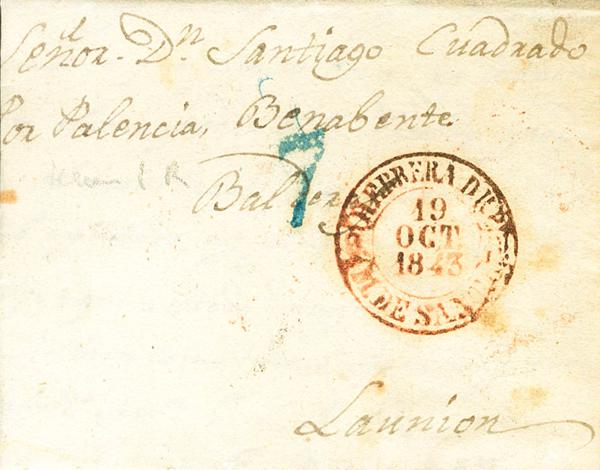 Señor Dn Santiago Cuadrado
Por Palencia, Benabente
7
HERRERA DE P
19
OCT.
1843
M. DE SAN
Launion